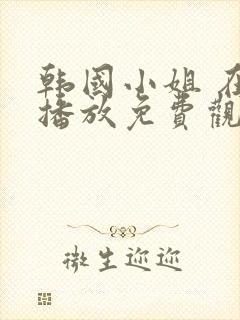 韩國小姐 在
播放免費觀
微生迩迩